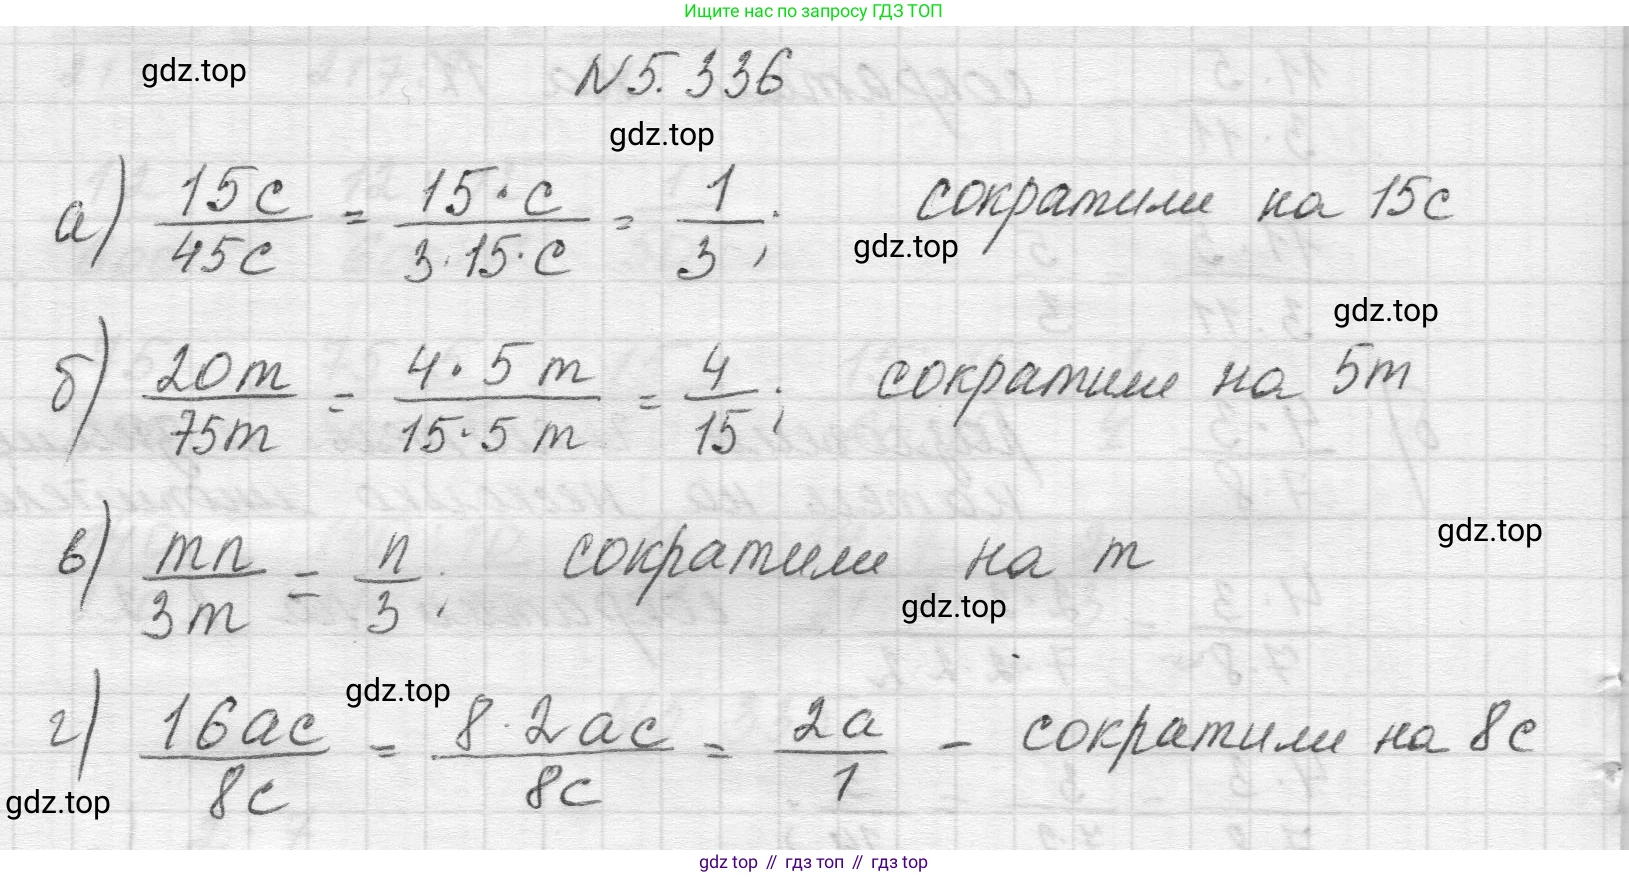 Ищите нас по запросу ГДЗ ТОП
gdz.top
N 5.336
gdz.top
а) 15c/45c = 15·c/3·15·c = 1/3; сократили на 15c
gdz.top
gdz.top
б) 20m/75m = 4·5m/15·5m = 4/15; сократили на 5m
gdz.top
в) mn/3m = n/3; сократили на m
gdz.top
gdz.top
г) 16ac/8c = 8·2ac/8c = 2a/1 – сократили на 8c
gdz.top
gdz top // гдз топ // гдз top